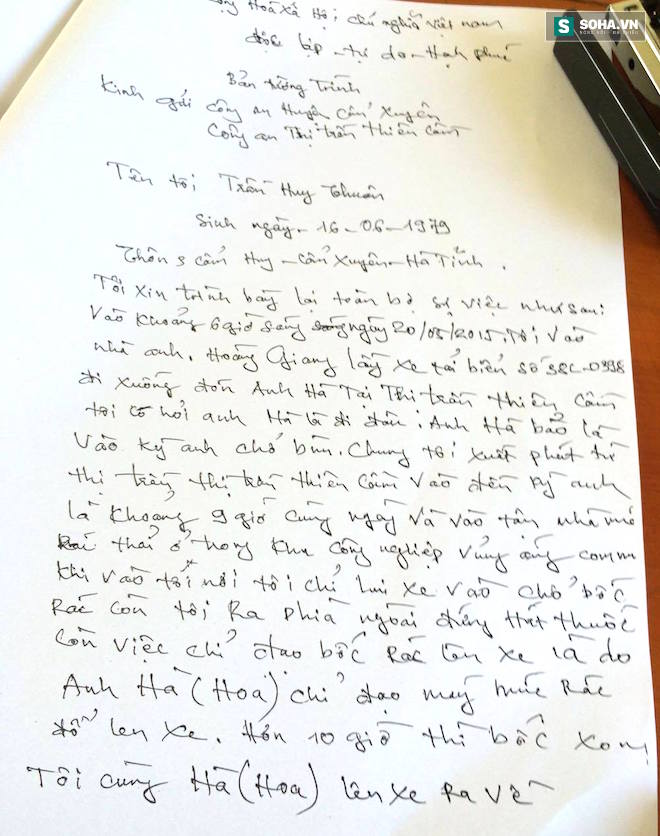 SOHA.VN
Cộng Hoà Xã Hội chủ nghĩa Việt nam
độc lập - tự do - Hạnh phúc
Bản tường Trình
Kính gửi công an Huyện Cẩm Xuyên
Công an Thị trấn Thiên Cầm
Tên tôi Trần Huy Thuân
Sinh ngày - 16 - 06 - 1979
Thôn 3 Cẩm Huy - Cẩm Xuyên - Hà Tĩnh.
Tôi xin trình bày lại toàn bộ sự việc như sau:
Vào khoảng 6 giờ sáng ngày 20/05/2015. Tôi vào
nhà anh. Hoàng Giang lấy xe tải biển số 38C-0398
đi xuống đón Anh Hà Tại Thị trấn thiên Cầm
tôi có hỏi anh Hà là đi đâu: Anh Hà bảo là
Vào kỳ anh chở bùn. Chúng tôi xuất phát từ
thị trấn thị trấn thiên Cầm vào đến kỳ anh
là khoảng 9 giờ cùng ngày và vào tận nhà
Rác thải ở trong khu công nghiệp vũng áng
khi vào tới nơi tôi chỉ lùi xe vào chỗ bốc
Rác còn tôi Ra phía ngoài đứng Hút thuốc
Còn việc chỉ đạo bốc Rác lên xe là do
Anh Hà (Hoa) chỉ đạo máy múc Rác
đổ lên xe. Hơn 10 giờ thì bốc xong
Tôi cùng Hà (Hoa) lên xe Ra về